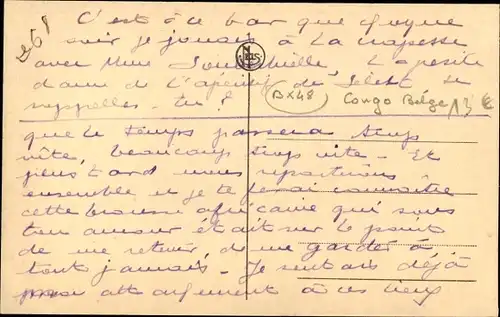 C'est à ce bar que chaque
soir je jouais à la
avec Mme La petite
dame de L'apéritif de te
rappelles-tu?
BX48 Congo Belge 13 €
que le temps passera trop
vite, beaucoup trop vite. Et
plus tard nous repartirons
ensemble et je te ferai connaître
cette brousse africaine qui sans
ton amour était sur le point
de me retenir, de me garder à
tout jamais. Je sentais déjà
mon attachement à ces lieux